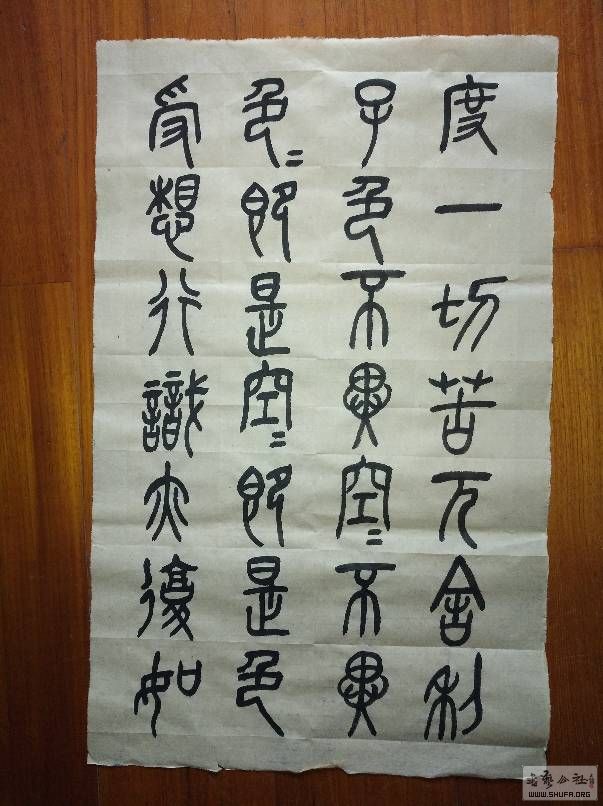 度一切苦厄舍利
子色不異空〻不異
色〻即是空〻即是色
受想行識亦復如
书艺公社
WWW.SHUFA.ORG